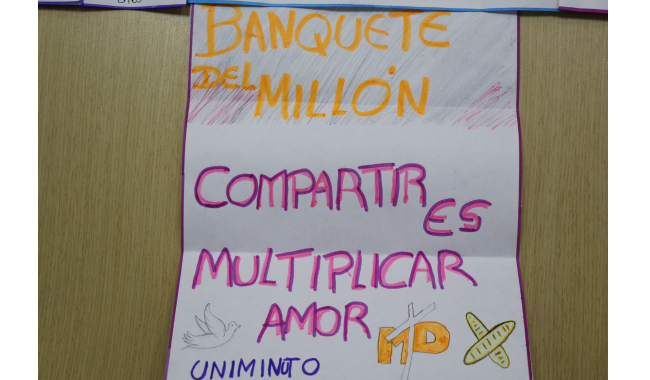 BANQUETE
DEL MILLÓN
COMPARTIR
ES
MULTIPLICAR
AMOR
MD
UNIMINUTO